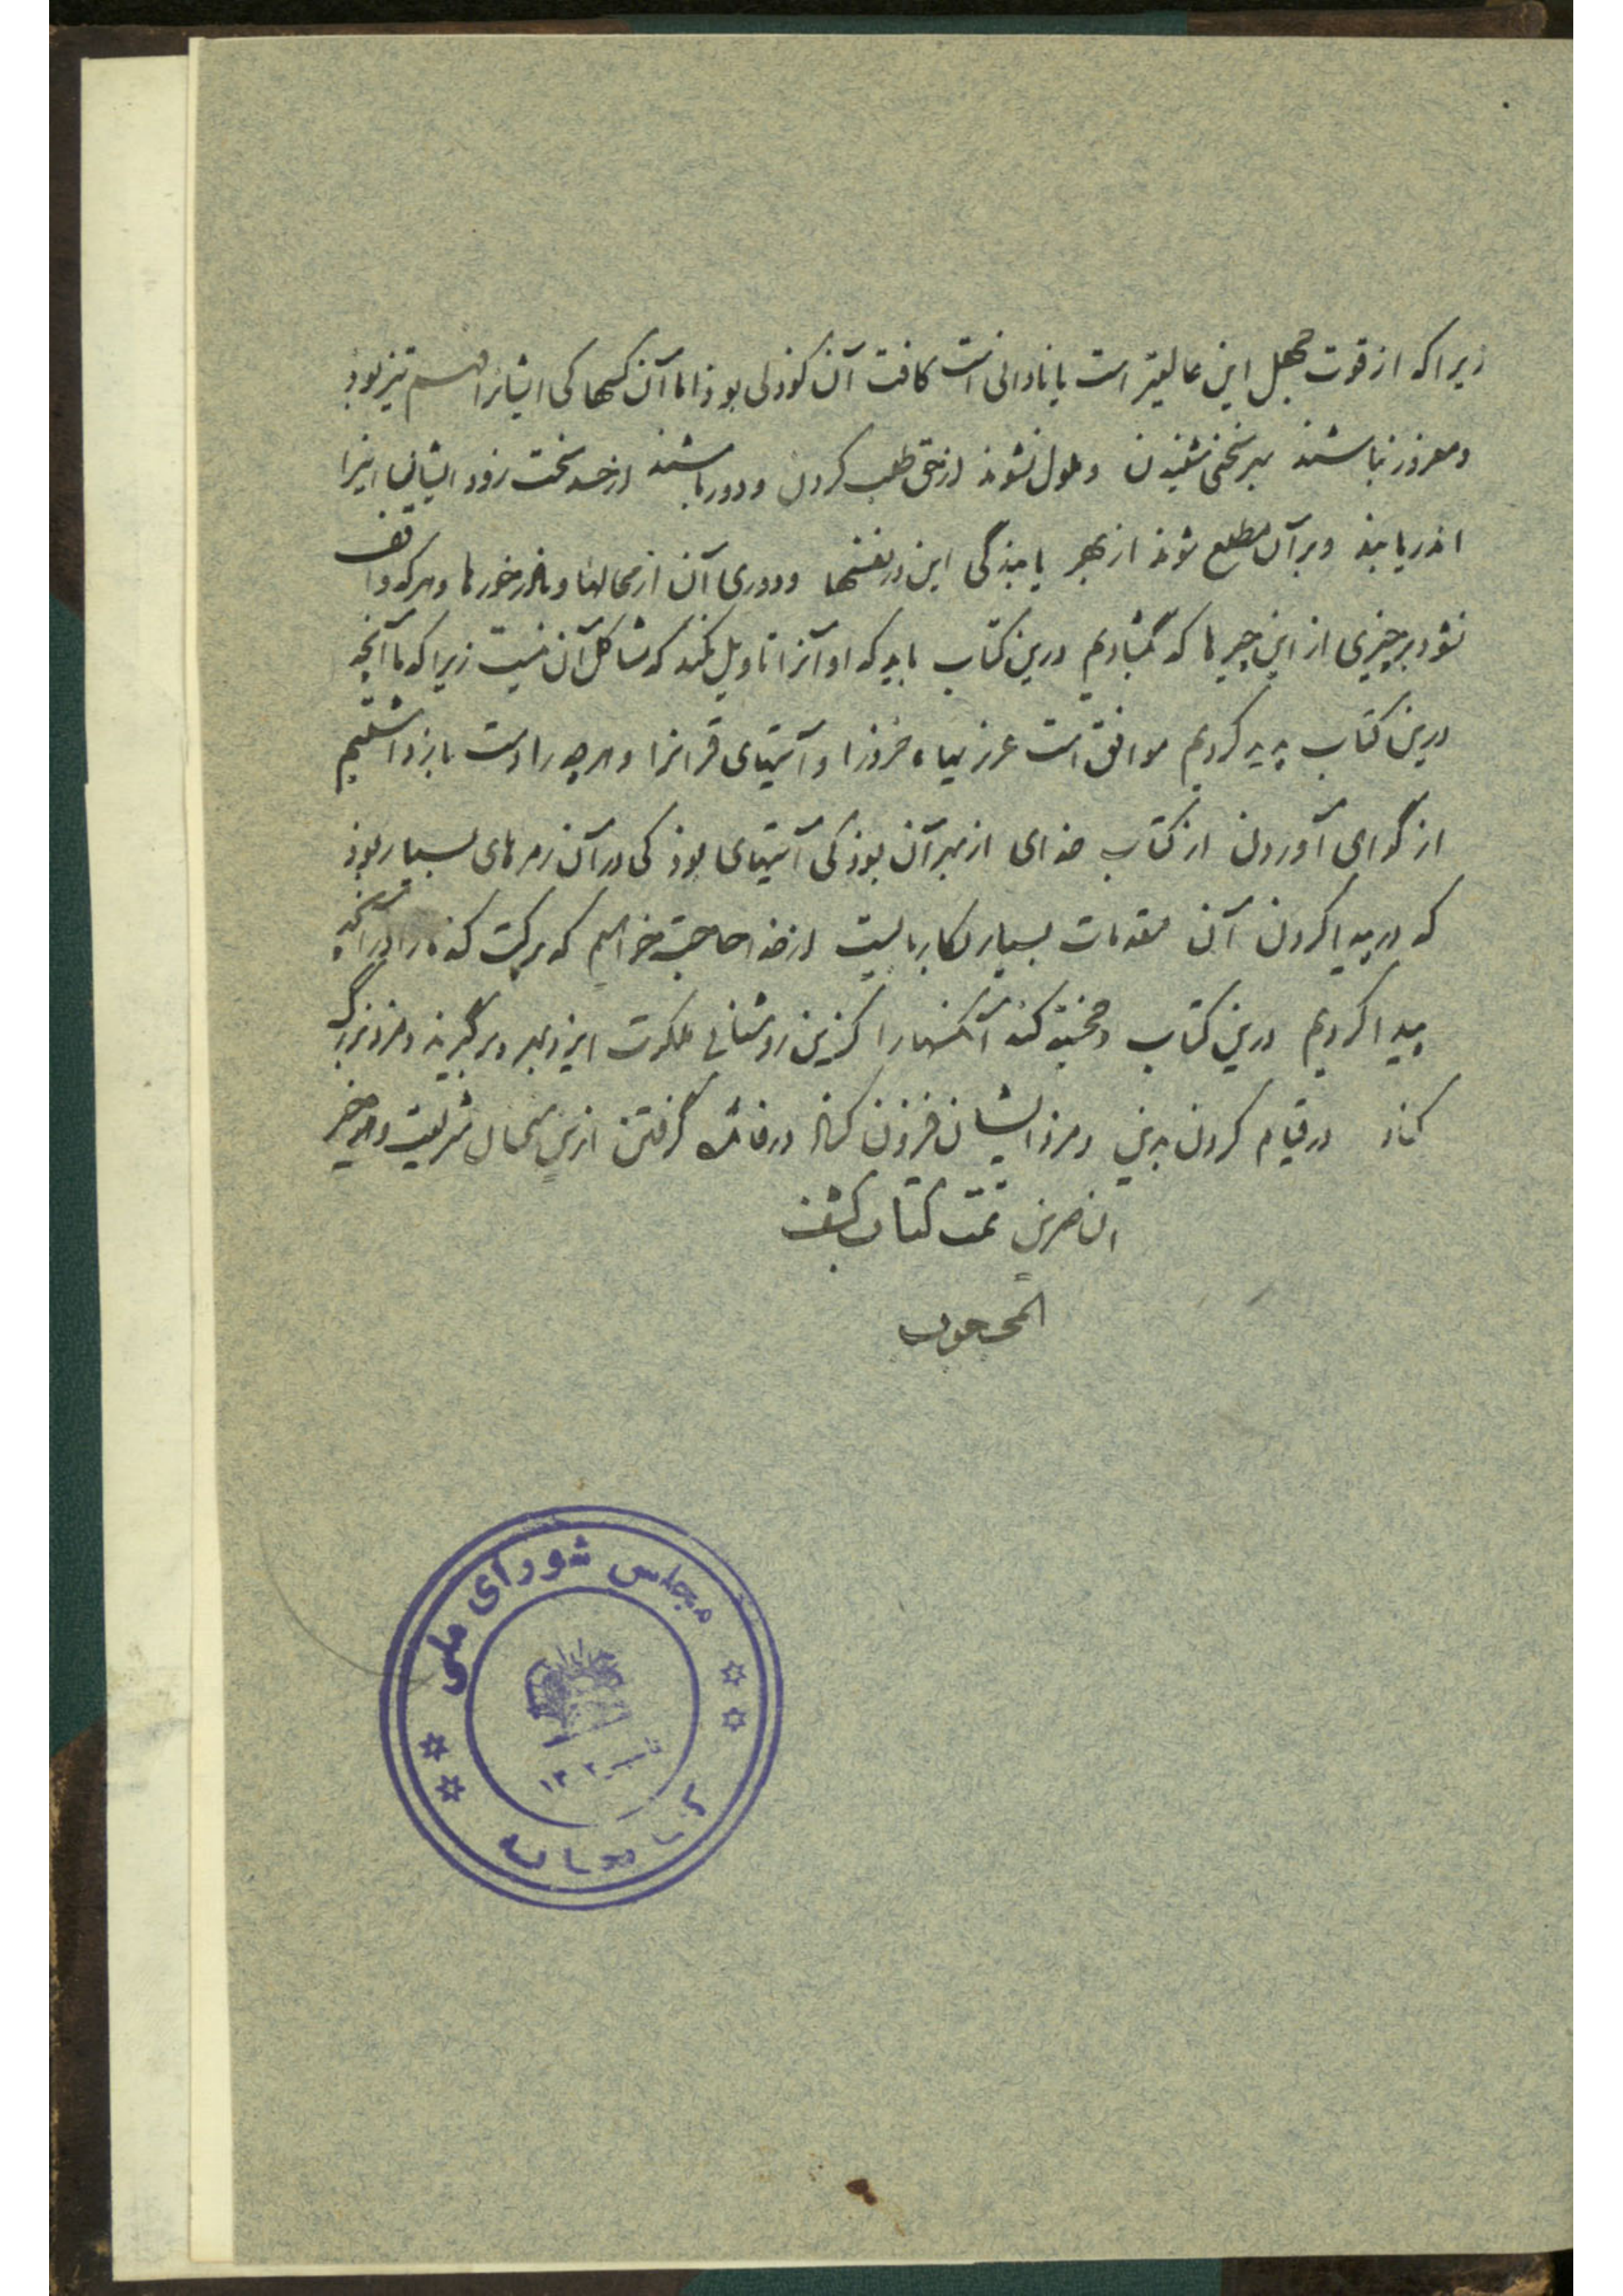 زیرا که از قوت جهل این عالیتر است یا نادانی است کافت آن کوذلی بوذ اما آن کسها کی ایشانرا فهم تیز بوذ
و مغرور نباشند بهر سخنی شنیدن و ملول نشوند از حق طلب کردن و دور باشند از حسد سخت زود ایشان اینرا
اندر یابند و بر آن مطلع شوند از بهر پایندگی این در نفسها و دوری آن از محالها و هر که واقف
شود بر چیزی از این چیزها که گشادیم درین کتاب باید که او آنرا تاویل نکند که مشاکل آن نیست زیرا که ما آنچه
درین کتاب پدید کردیم موافق است و آیتهای قرآنرا و هر چه را دست باز داشتیم
از گوای آوردن از کتاب خدای از بهر آن بوذ کی آیتهای بوذ کی در آن رمزهای بسیار بوذ
که در پیدا کردن آن مقدمات بسیار بکار بایست از خدا حاجت خواهیم که برکت کند ما را در آنچه
پیدا کردیم درین کتاب و کند آنکسها را کزین روشنائی ملکوت ایزد بهره برگیرند و مزد بزرگ
کناد در قیام کردن بدین و مزد ایشان فزون کناد در فائده گرفتن ازین شریعت و هو خیر
الناصرین تمت کتاب کشف
المحجوب
مجلس شورای ملی
تأسیس ۱۳۰۲
کتابخانه